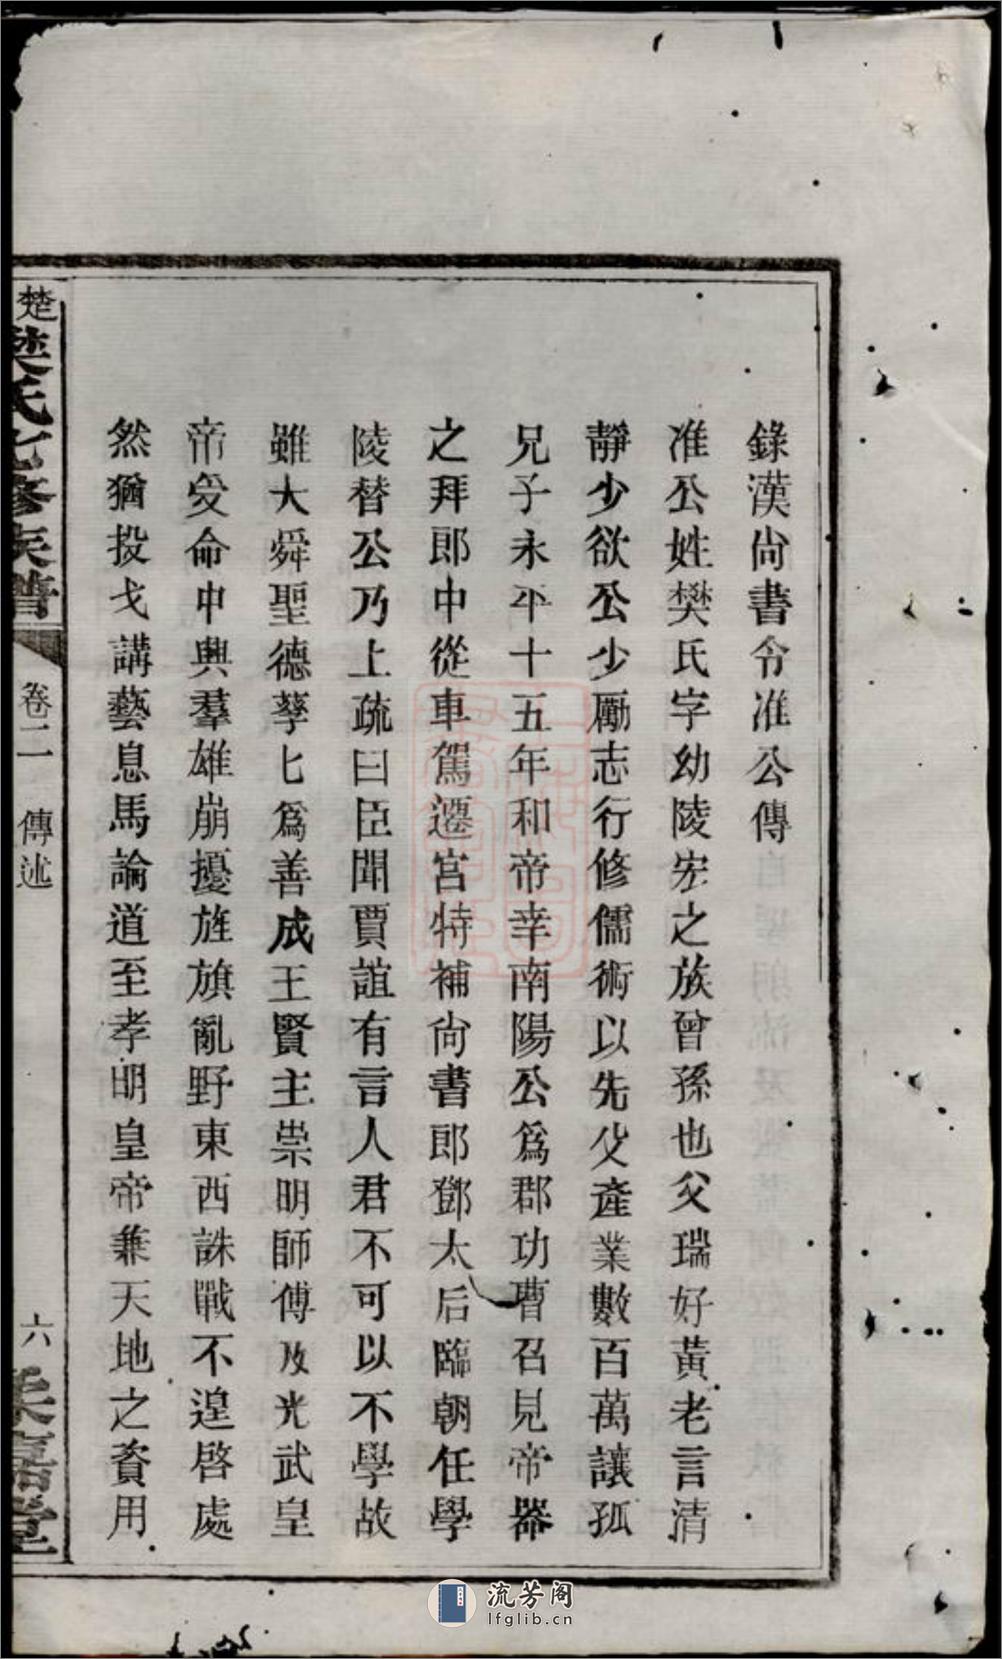 錄漢尙書令准公傳
准公姓樊氏字幼陵宏之族曾孫也父瑞好黃老言清
靜少欲公少勵志行修儒術以先父產業數百萬讓孤
兄子永平十五年和帝幸南陽公爲郡功曹召見帝器
之拜郎中從車駕遷宮特補尙書郎鄧太后臨朝任學
陵替公乃上疏曰臣聞賈誼有言人君不可以不學故
雖大舜聖德孳匕爲善成王賢主崇明師傅及光武皇
帝受命中興羣雄崩擾旌旗亂野東西誅戰不遑啓處
然猶投戈講藝息馬論道至孝明皇帝兼天地之資用
楚樊氏七修族譜
卷二 傳述
六
流芳阁
lfglib.cn